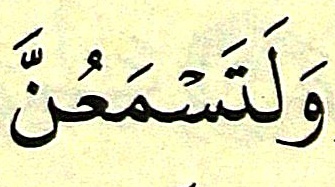 وَلَتَسۡمَعُنَّ